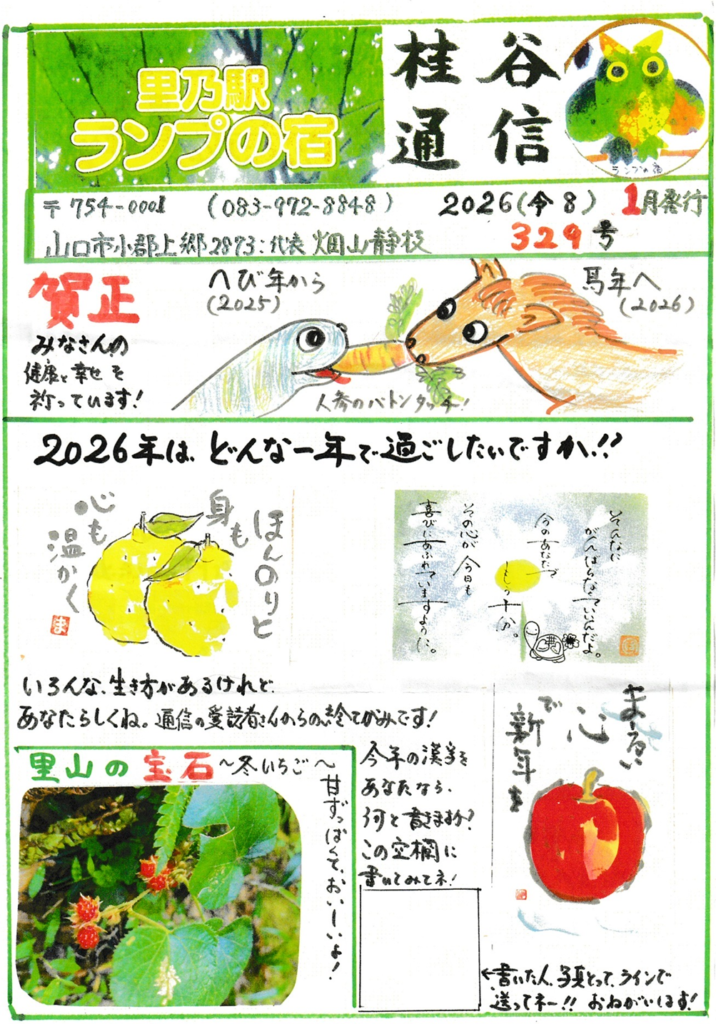 里乃駅
ランプの宿
桂谷
通信
ランプの宿
〒754-0001 (083-972-8848)
山口市小郡上郷2873:代表 畑山静枝
2026(令8) 1月発行
329号
賀正
みなさんの
健康と幸せを
祈っています!
へび年から
(2025)
馬年へ
(2026)
人参のバトンタッチ!
2026年は、どんな一年で過ごしたいですか!!
ほんのりと
身も
心も
温かく
そんなに
がんばらなくていいんだよ。
今のあなたで
もう十分。
その心が今日も
喜びにあふれていますように。
いろんな、生き方があるけれど、
あなたらしくね。通信の愛読者さんからの絵てがみです!
まーるい
心
で
新年を
里山の宝石~冬いちご~
甘ずっぱくて、おいしいよ!
今年の漢字を
あなたなら、
何と書きますか?
この空欄に
書いてみてネ!
←書いた人、写真とって、ラインで
送ってネー!! おねがいします!